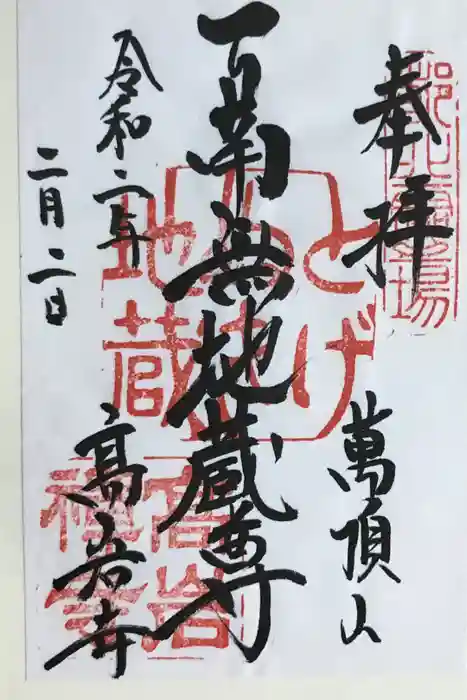 奉拝
萬頂山
南無地蔵尊
令和二年
二月二日
髙岩寺
とげ
ぬき
地蔵
高岩
禅寺